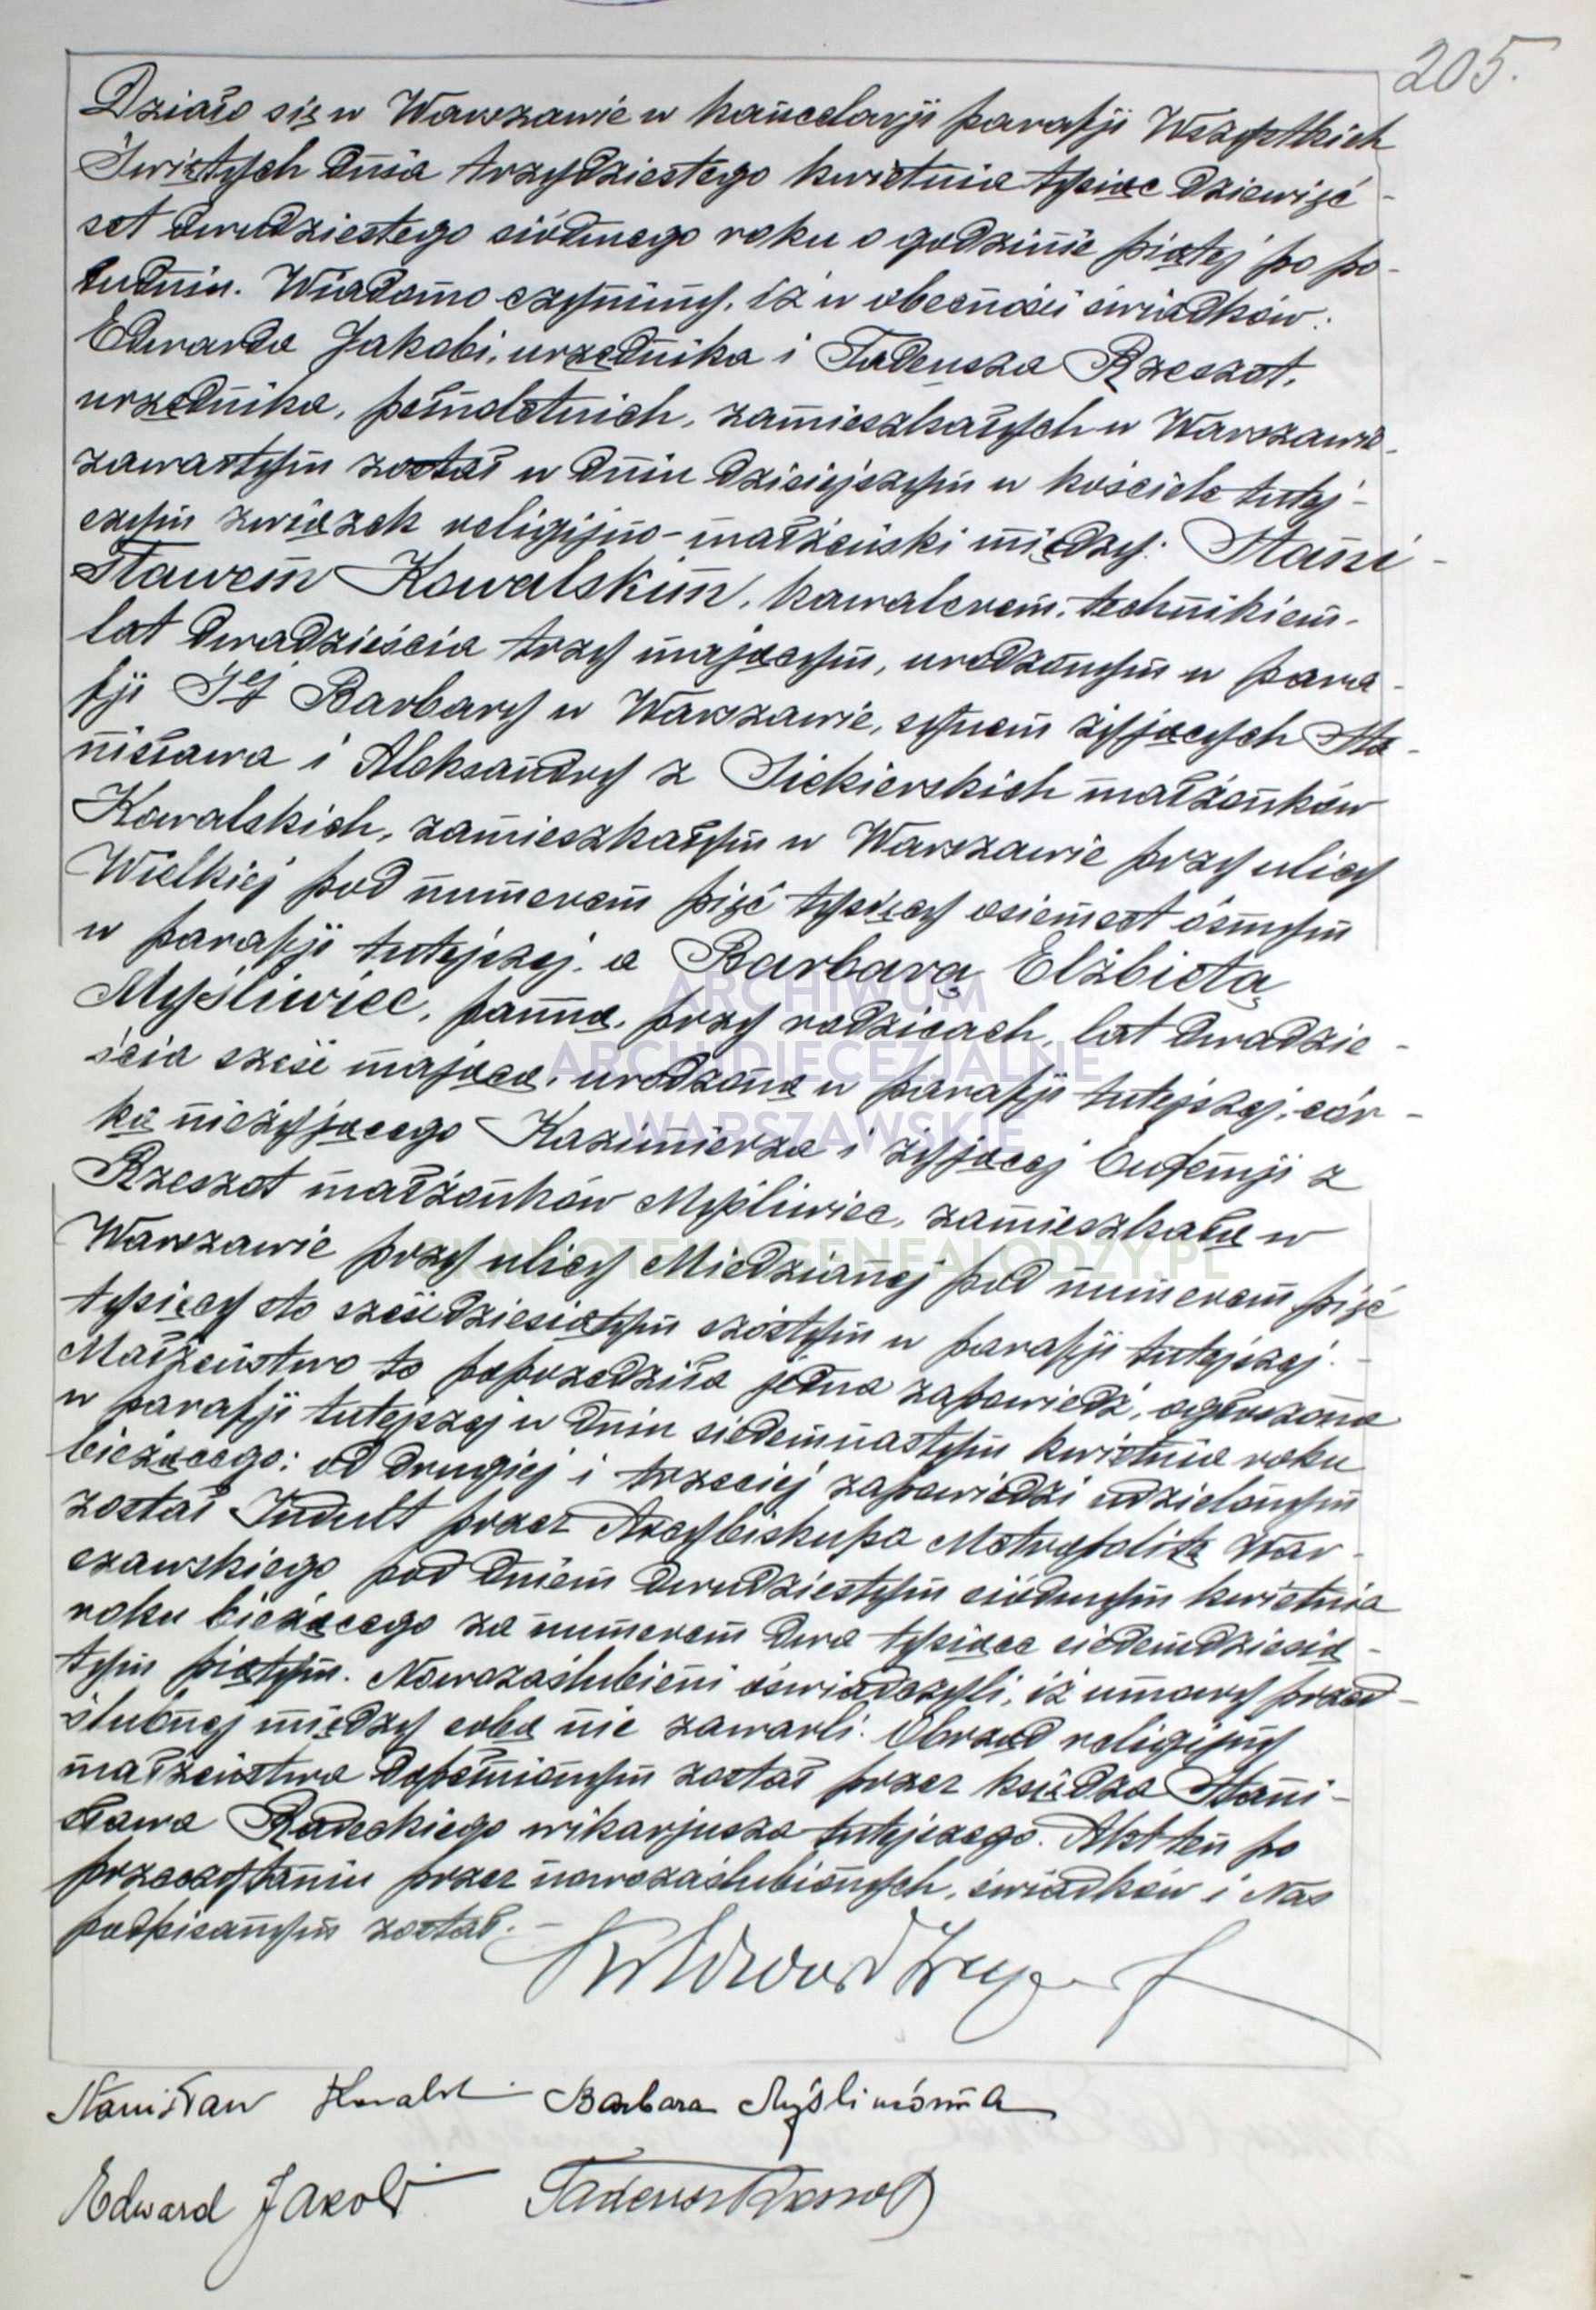 205.
Działo się w Warszawie w kancelarji parafji Wszystkich
Świętych dnia trzydziestego kwietnia tysiąc dziewięć-
set dwudziestego siódmego roku o godzinie piątej po po-
łudniu. Wiadomo czynimy, iż w obecności świadków:
Edwarda Jakobi, urzędnika i Tadeusza Rzeszot,
urzędnika, pełnoletnich, zamieszkałych w Warszawie-
zawartym został w dniu dzisiejszym w kościele tutej-
szym związek religijno-małżeński między: Stani-
sławem Kowalskim, kawalerem, technikiem,
lat dwadzieścia trzy mającym, urodzonym w para-
fji Śej Barbary w Warszawie, synem żyjących Sta-
nisława i Aleksandry z Siekierskich małżonków
Kowalskich, zamieszkałym w Warszawie przy ulicy
Wielkiej pod numerem pięć tysięcy osiemset ósmym
w parafji tutejszej, a Barbarą Elżbietą
Myśliwiec, panną, przy rodzicach, lat dwadzie-
ścia sześć mającą, urodzoną w parafji tutejszej, cór-
ką nieżyjącego Kazimierza i żyjącej Eufemji z
Rzeszot małżonków Myśliwiec, zamieszkałą w
Warszawie przy ulicy Miedzianej pod numerem pięć
tysięcy sto sześćdziesiątym szóstym w parafji tutejszej. -
Małżeństwo to poprzedziła jedna zapowiedź, ogłoszona
w parafji tutejszej w dniu siedemnastym kwietnia roku
bieżącego: od drugiej i trzeciej zapowiedzi udzielonym
został Indult przez Arcybiskupa Metropolitę War-
szawskiego pod dniem dwudziestym siódmym kwietnia
roku bieżącego za numerem dwa tysiące siedemdziesią-
tym piątym. Nowozaślubieni oświadczyli, iż umowy przed-
ślubnej między sobą nie zawarli. Obrząd religijny
małżeństwa dopełnionym został przez księdza Stani-
sława Radeckiego wikarjusza tutejszego. Akt ten po
przeczytaniu przez nowozaślubionych, świadków i Nas
podpisanym został. -
Stanisław Kowalski Barbara Myśliwówna
Edward Jakobi Tadeusz Rzeszot
ARCHIWUM
ARCHIDIECEZJALNE
WARSZAWSKIE
SKANOTEKA.GENEALODZY.PL